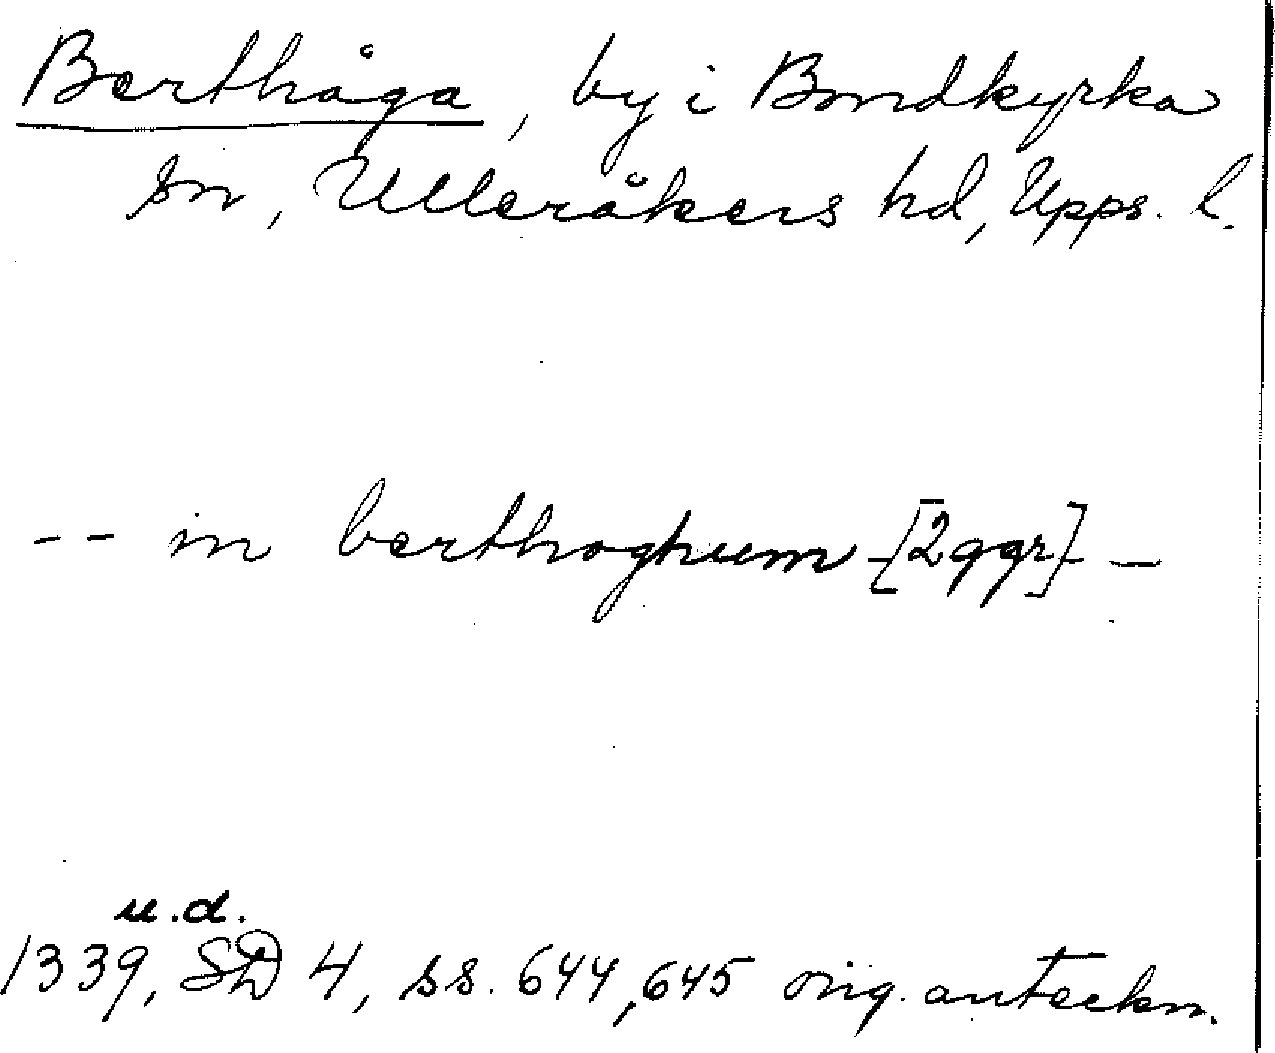 Berthåga, by i Bondkyrka
sn, Ulleråkers hd, Upps. l.
-- in berthoghum [2 ggr] -
u.d.
1339, SD 4, ss. 644, 645 orig. anteckn.